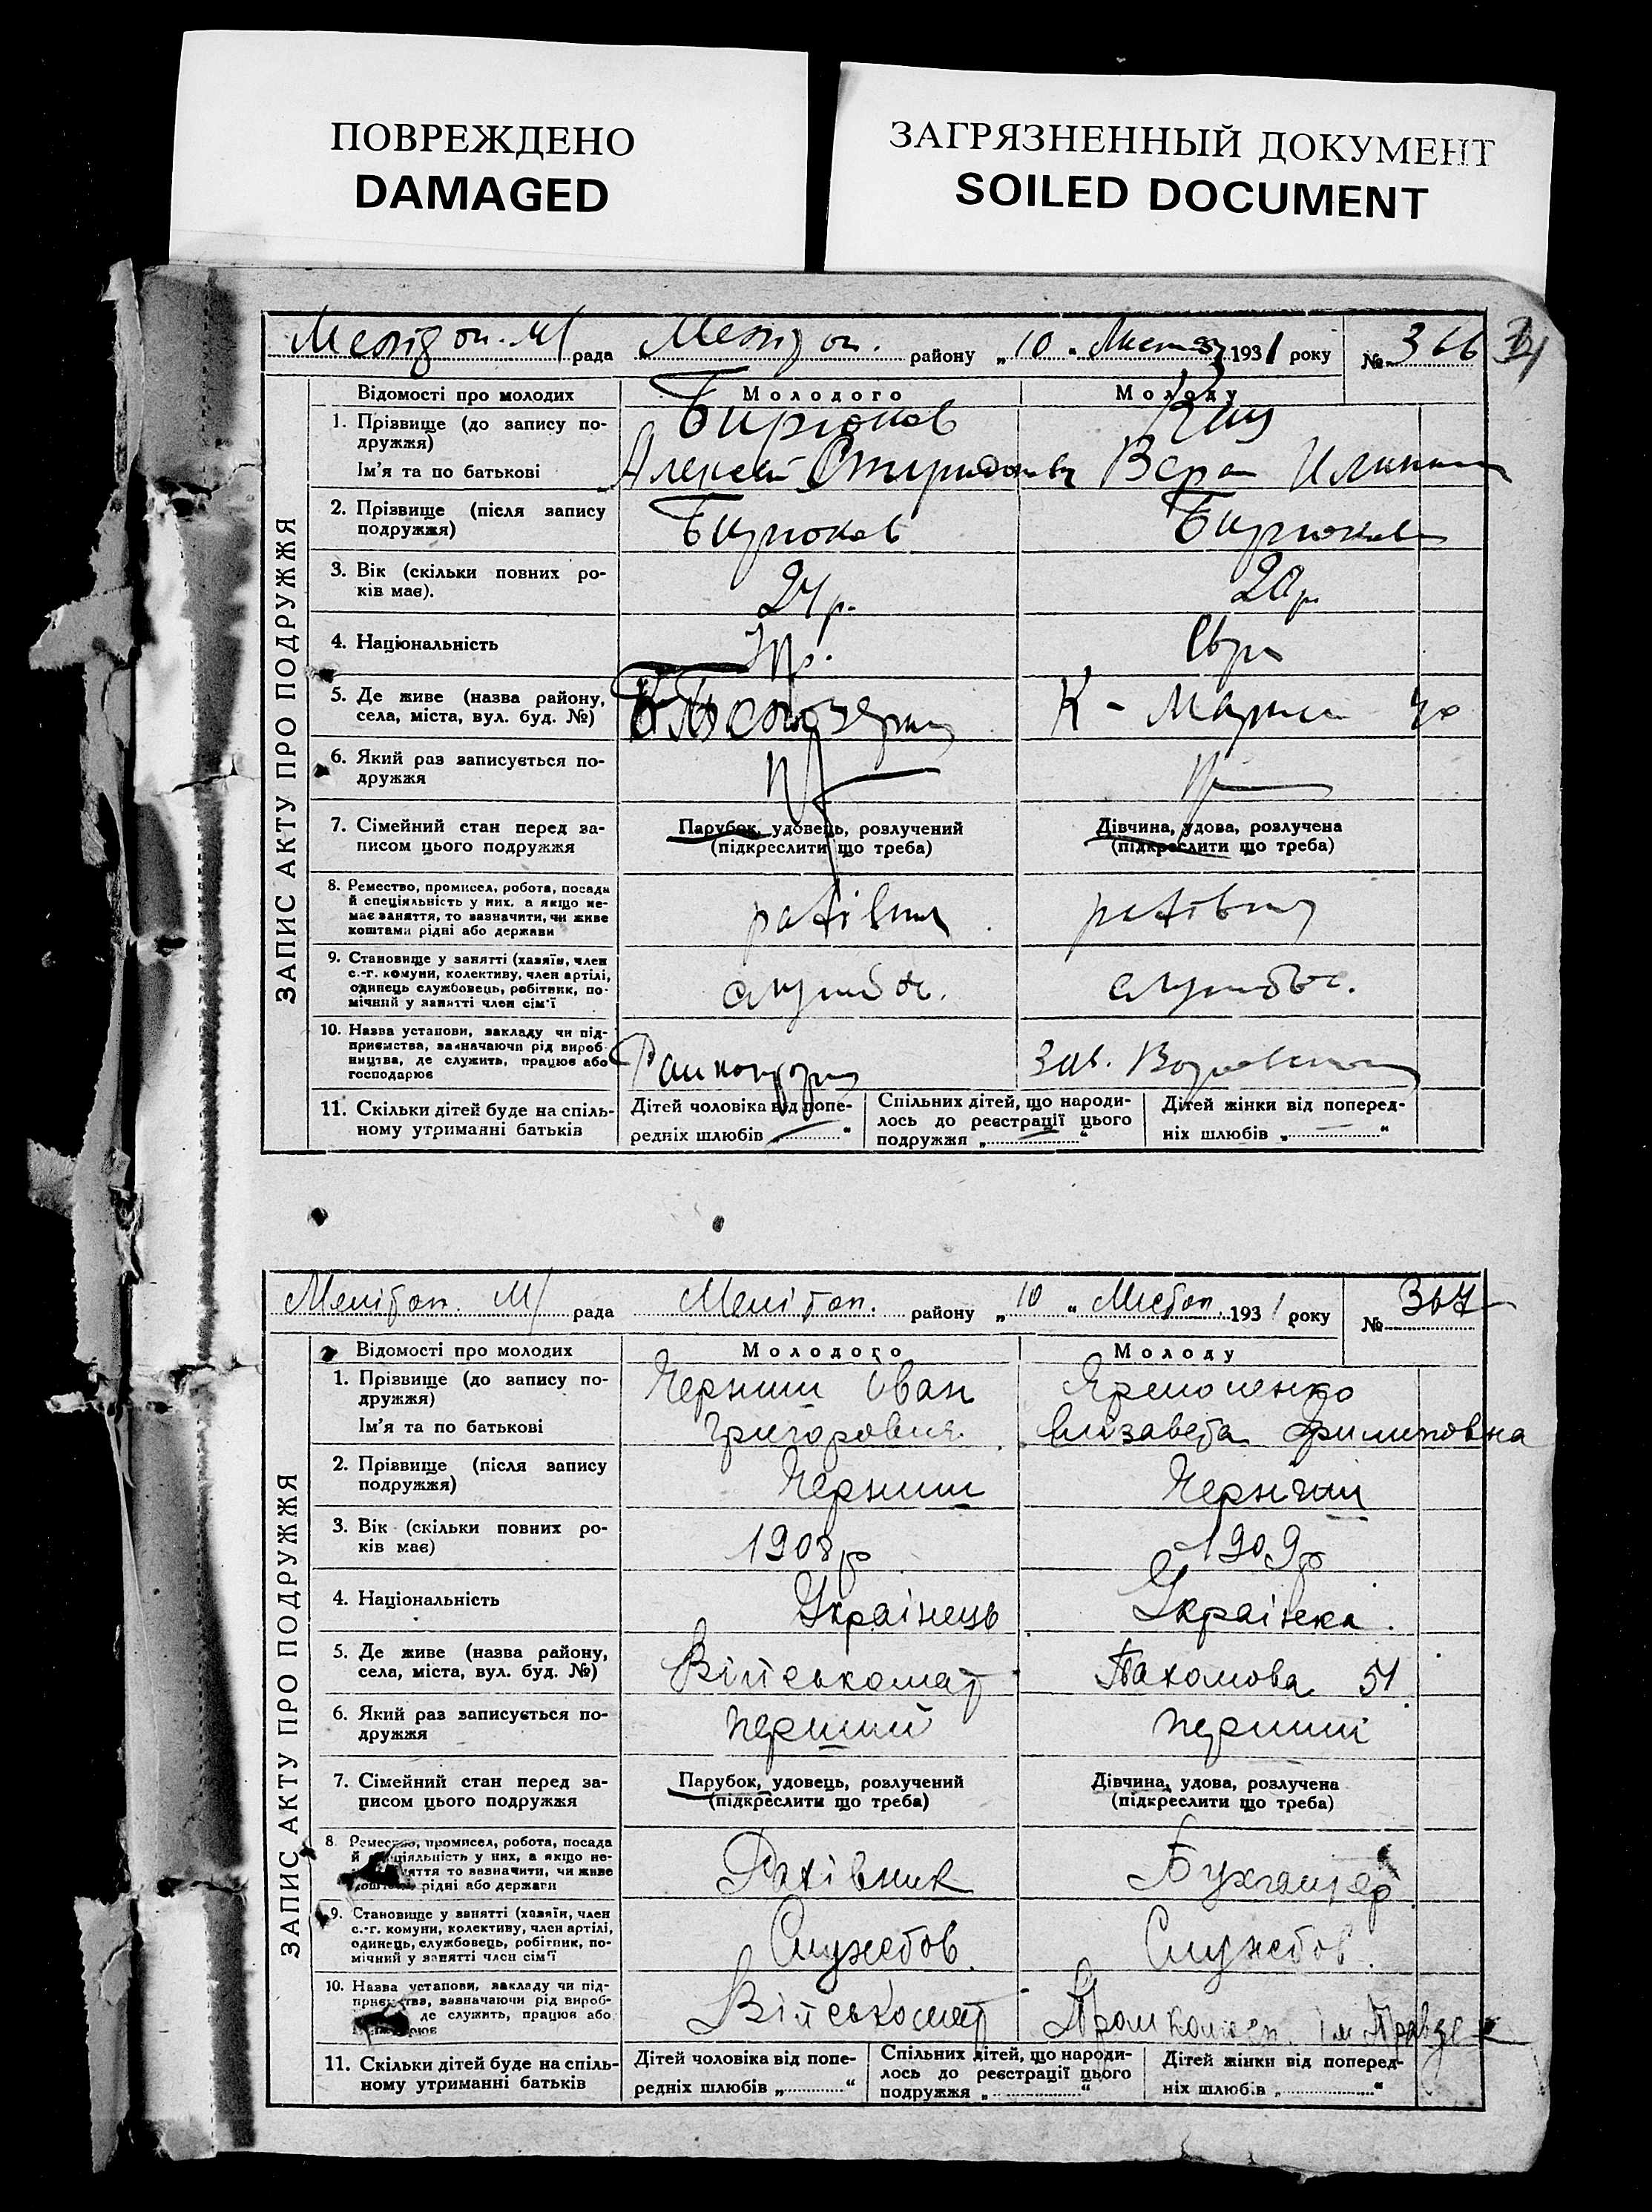 ПОВРЕЖДЕНО
DAMAGED
ЗАГРЯЗНЕННЫЙ ДОКУМЕНТ
SOILED DOCUMENT
рада району „10“ 1931 року № 366
ЗАПИС АКТУ ПРО ПОДРУЖЖЯ
Відомості про молодих
Молодого
Молоду
1. Прізвище (до запису по-
дружжя)
Ім'я та по батькові
Бирюков
Алексей
Вера
2. Прізвище (після запису
подружжя)
Бирюков
Бирюков
3. Вік (скільки повних ро-
ків має).
24 р.
20 р.
4. Національність
Укр.
Євр
5. Де живе (назва району,
села, міста, вул. буд. №)
К-Маркса
6. Який раз записується по-
дружжя
7. Сімейний стан перед за-
писом цього подружжя
Парубок, удовець, розлучений
(підкреслити що треба)
Дівчина, удова, розлучена
(підкреслити що треба)
8. Ремество, промисел, робота, посада
й спеціяльність у них, а якщо не-
має заняття, то зазначити, чи живе
коштами рідні або держави
рахівник
рахівниц
9. Становище у занятті (хазяїн, член
с.-г. комуни, колективу, член артілі,
одинець службовець, робітник, по-
мічний у занятті член сім'ї
службов.
службов.
10. Назва установи, закладу чи під-
приємства, зазначаючи рід вироб-
ництва, де служить, працює або
господарює
Зав.
11. Скільки дітей буде на спіль-
ному утриманні батьків
Дітей чоловіка від попе-
редніх шлюбів „ “
Спільних дітей, що народи-
лось до реєстрації цього
подружжя „ “
Дітей жінки від поперед-
ніх шлюбів „ “
Меліtоп. М/ рада Меліtоп. району „10“ Листоп. 1931 року № 367
ЗАПИС АКТУ ПРО ПОДРУЖЖЯ
Відомості про молодих
Молодого
Молоду
1. Прізвище (до запису по-
дружжя)
Ім'я та по батькові
Черниш Іван
Григорович
Яремоленко
Єлизавета Филиповна
2. Прізвище (після запису
подружжя)
Черниш
Черниш
3. Вік (скільки повних ро-
ків має)
1908 р
1909 р
4. Національність
Українець
Українка.
5. Де живе (назва району,
села, міста, вул. буд. №)
Військомат
Пахомова 51
6. Який раз записується по-
дружжя
перший
перший
7. Сімейний стан перед за-
писом цього подружжя
Парубок, удовець, розлучений
(підкреслити що треба)
Дівчина, удова, розлучена
(підкреслити що треба)
8. Ремество, промисел, робота, посада
й спеціяльність у них, а якщо не-
має заняття то зазначити, чи живе
коштами рідні або держави
Рахівник
Бухгалтер
9. Становище у занятті (хазяїн, член
с.-г. комуни, колективу, член артілі,
одинець, службовець, робітник, по-
мічний у занятті член сім'ї
Службов.
Службов.
10. Назва установи, закладу чи під-
приємства, зазначаючи рід вироб-
де служить, працює або
Військомат
11. Скільки дітей буде на спіль-
ному утриманні батьків
Дітей чоловіка від попе-
редніх шлюбів „ “
Спільних дітей, що народи-
лось до реєстрації цього
подружжя „ “
Дітей жінки від поперед-
ніх шлюбів „ “